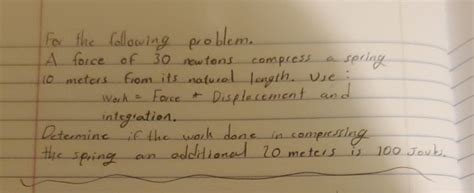 For the following problem.
A force of 30 newtons compress a spring
10 meters from its natural length. Use :
Work = Force * Displacement and
integration.
Determine if the work done in compressing
the spring an additional 20 meters is 100 Jouls.